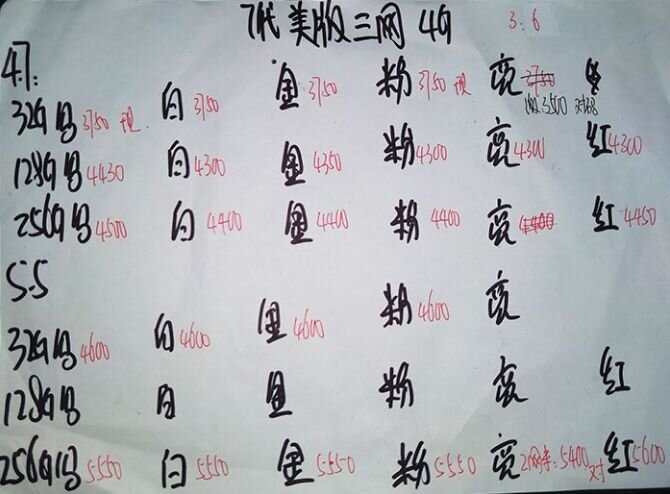 7代 美版三网 4G 3:6
4.7:
32G 黑 3750 现 白 3750 金 3750 粉 3750 现 亮 3750
3500
128G 黑 4430 白 4300 金 4350 粉 4300 亮 4300 红 4300
256G 黑 4500 白 4400 金 4400 粉 4400 亮 4400 红 4450
5.5
32G 黑 4600 白 4600 金 4600 粉 4600 亮
128G 黑 白 金 粉 亮 红
256G 黑 5550 白 5550 金 5550 粉 5550 亮 2网 5400 红 5600